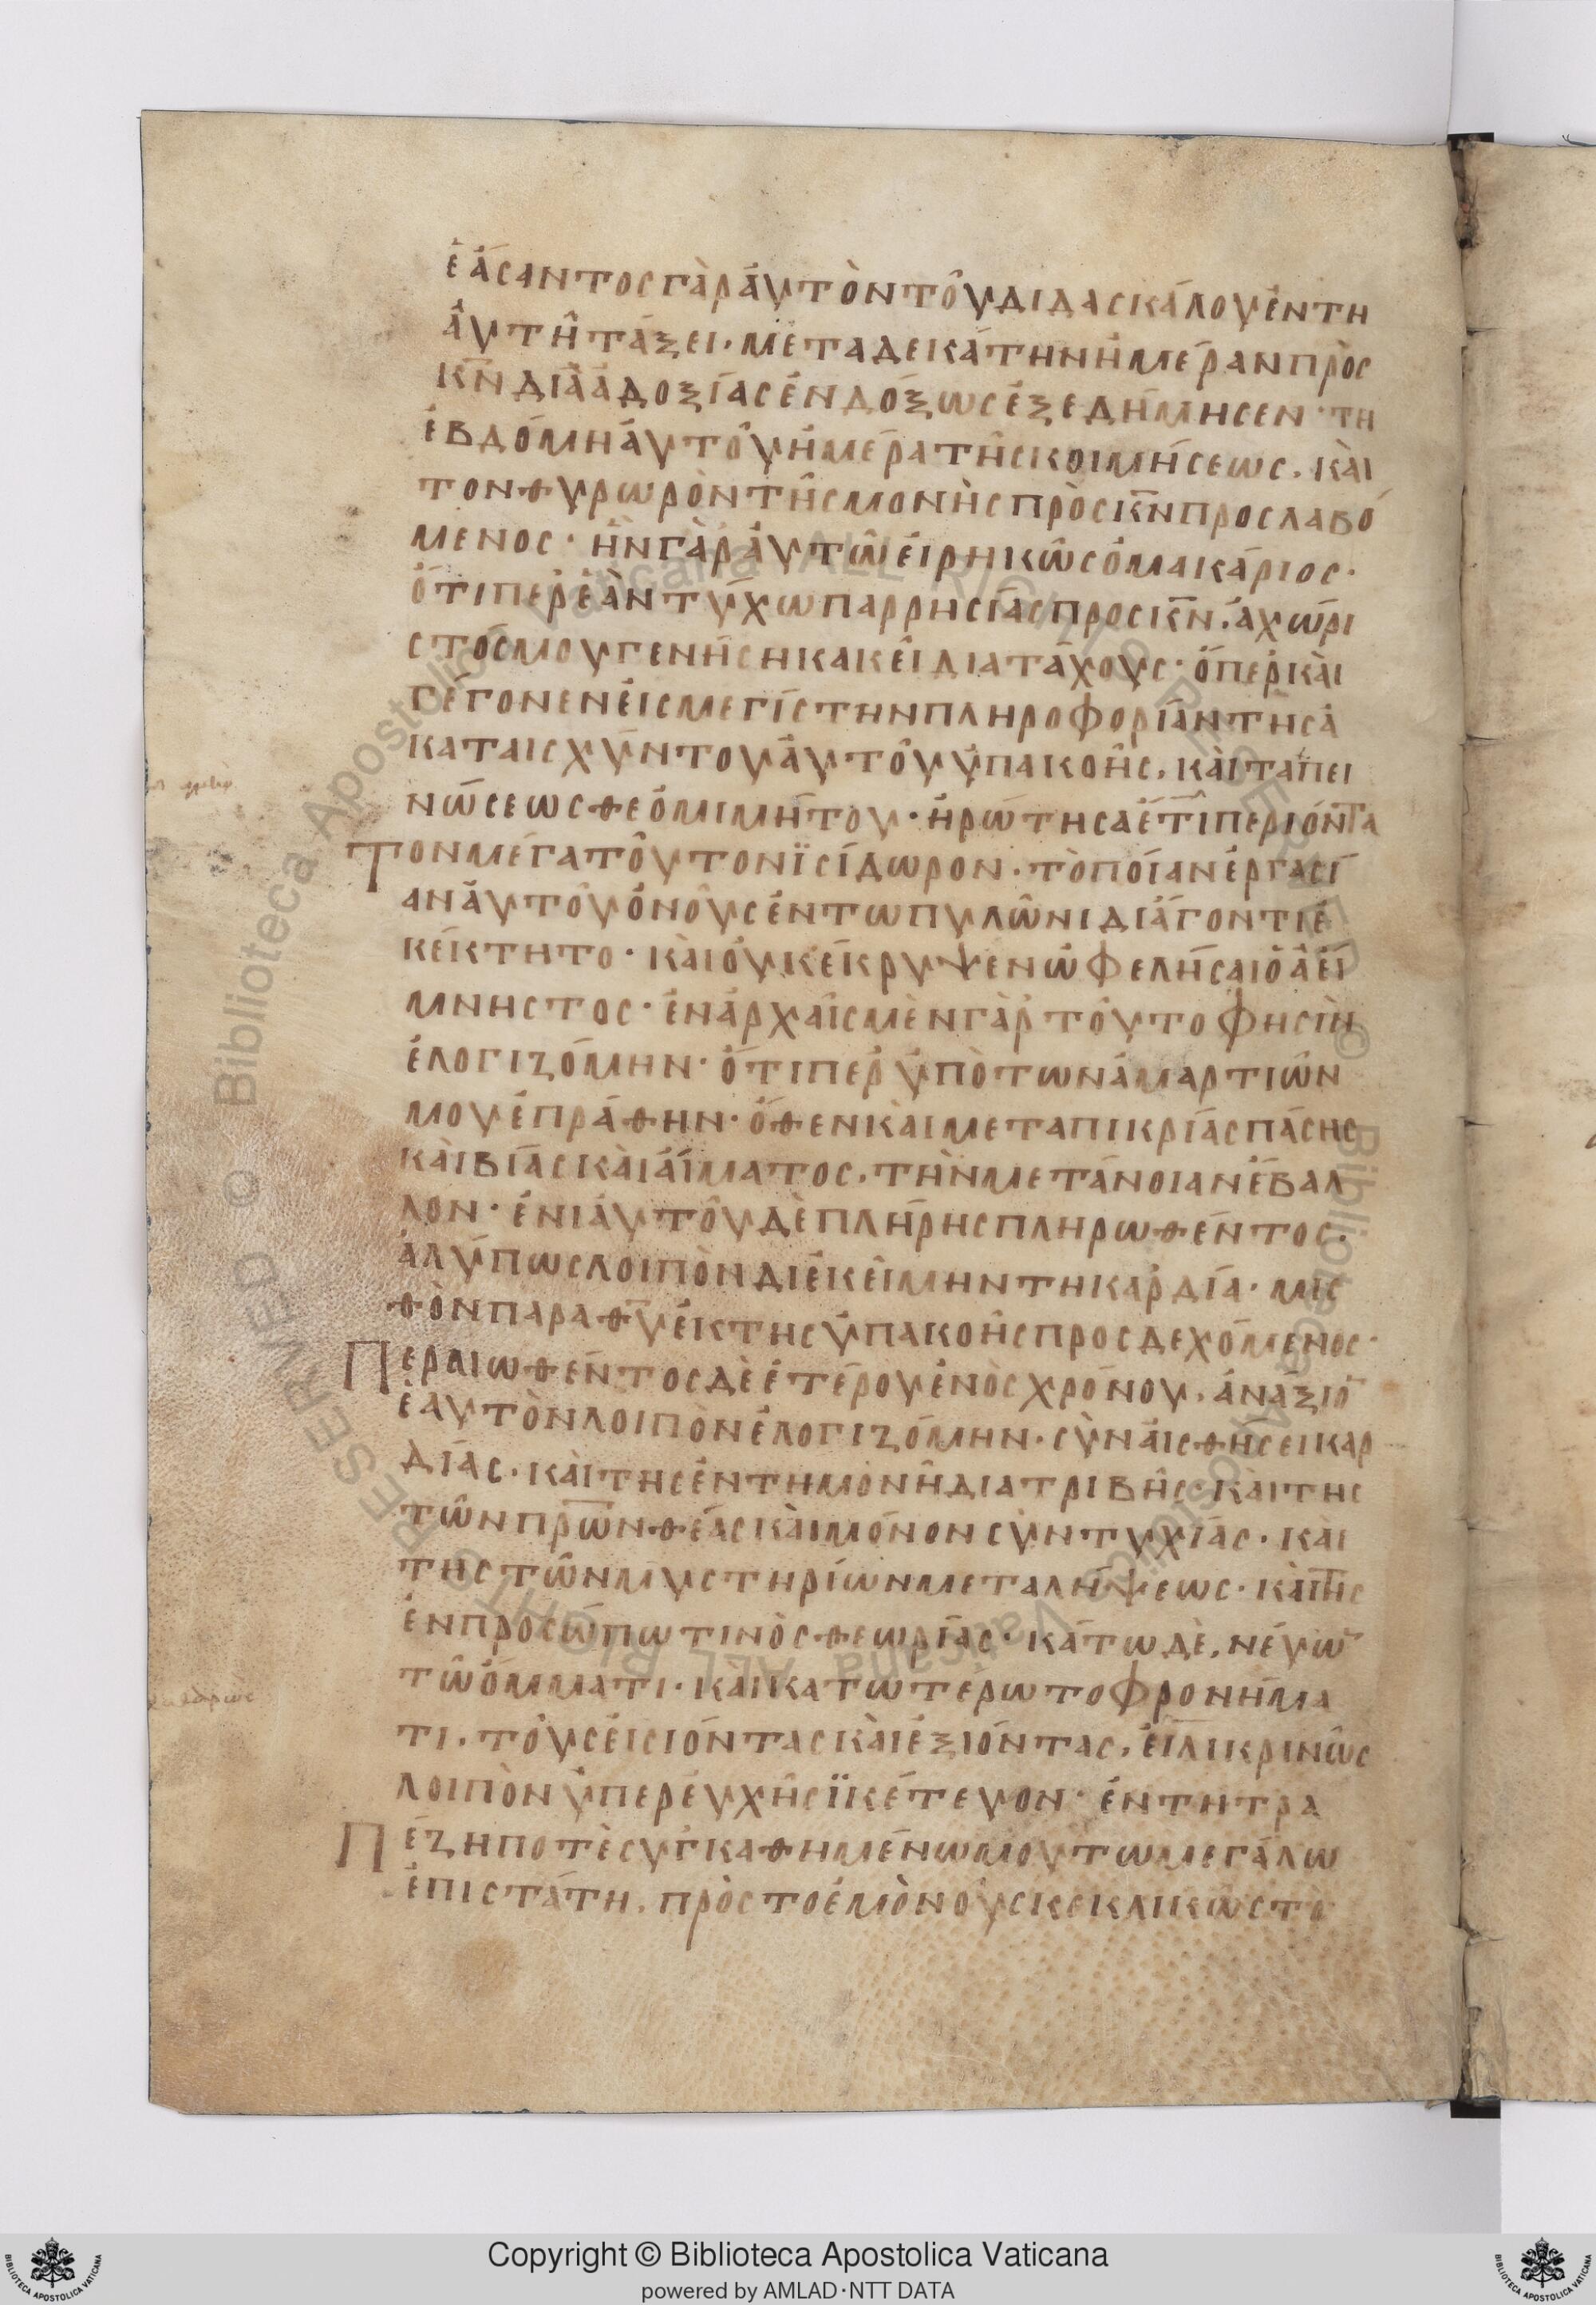 ἐάσαντος γὰρ ἀυτὸν τοῦ διδασκάλου ἐν τη
ἀυτῆ τάξει · μετα δεκάτην ἡμέραν πρὸς
κ̅ν̅ διὰ ἀδοξίας ἐνδόξως ἐξεδήμησεν · τη
ἑβδόμη ἀυτοῦ ἡμέρα τῆς κοιμήσεως . κὰι
τον θυρωρὸν τῆς μονὴς πρὸς κ̅ν̅ προσλαβό
μενος · ἦν γὰρ ἀυτῶ ἐιρηκῶς ὁ μακάριος ·
ὅτιπερ ἐὰν τύχω παρρησίας προς κ̅ν̅ . ἀχώρι
στός μου γενήση κακεῖ δια τάχους · ὅπερ κὰι
γέγονεν ἐις μεγίστην πληροφορίαν τῆς ἀ
καταισχύντου ἀυτοῦ ὑπακοῆς . κὰι ταπει
νώσεως θεομιμήτου · ἠρώτησα ἔτι περιόντα
Τον μέγα τοῦτον ϊσίδωρον . τὸ ποίαν ἐργασί
αν ἀυτοῦ ὁ νοῦς ἐν τω πυλῶνι διάγοντι ἐ
κέκτητο · κὰι ὀυκ έκρυψεν ὠφελήσαι ὁ ἀεί
μνηστος · ἐν ἀρχαῖς μὲν γὰρ τοῦτο φησὶν
ἐλογιζόμην · ὅτιπερ ὑπὸ των ἁμαρτιῶν
μου ἐπράθην · ὅθεν κὰι μετα πικρίας πάσης
κὰι βίας κὰι ἁίματος . τὴν μετάνοιαν ἔβαλ
λον · ἐνιαυτοῦ δὲ πλήρης πληρωθέντος .
ἀλύπως λοιπὸν διεκείμην τη καρδία · μισ
θὸν παρα θ̅υ̅ ἐκ της ὑπακοῆς προσδεχόμενος ·
Περαιωθέντος δὲ ἑτέρου ἑνὸς χρόνου . ἀνάξιο̅
ἑαυτὸν λοιπὸν ἐλογιζόμην . σὺν ἀισθήσει καρ
δίας . κὰι της ἐν τη μονῆ διατριβῆς . κὰι της
τῶν π̅ρ̅ω̅ν̅ θέας κὰι μόνον συντυχίας . κὰι
της τῶν μυστηρίων μεταλήψεως · κὰι της
ἐνπροσώπω τινὸς θεωρίας · κάτω δὲ . νέυω̅
τῶ ὄμματι · κὰι κατωτέρω το φρονήμα
τι . τοὺς ἐισιόντας κὰι ἐξιόντας . ἐιλικρινῶς
λοιπὸν ὑπερ ἐυχῆς ϊκέτευον · ἐν τη τρα
Πέζη ποτὲ συγκαθημένω μου τω μεγάλω
ἐπιστάτη . πρὸς το ἐμὸν οὖς κεκλικὼς τὸ
Copyright © Biblioteca Apostolica Vaticana
powered by AMLAD·NTT DATA